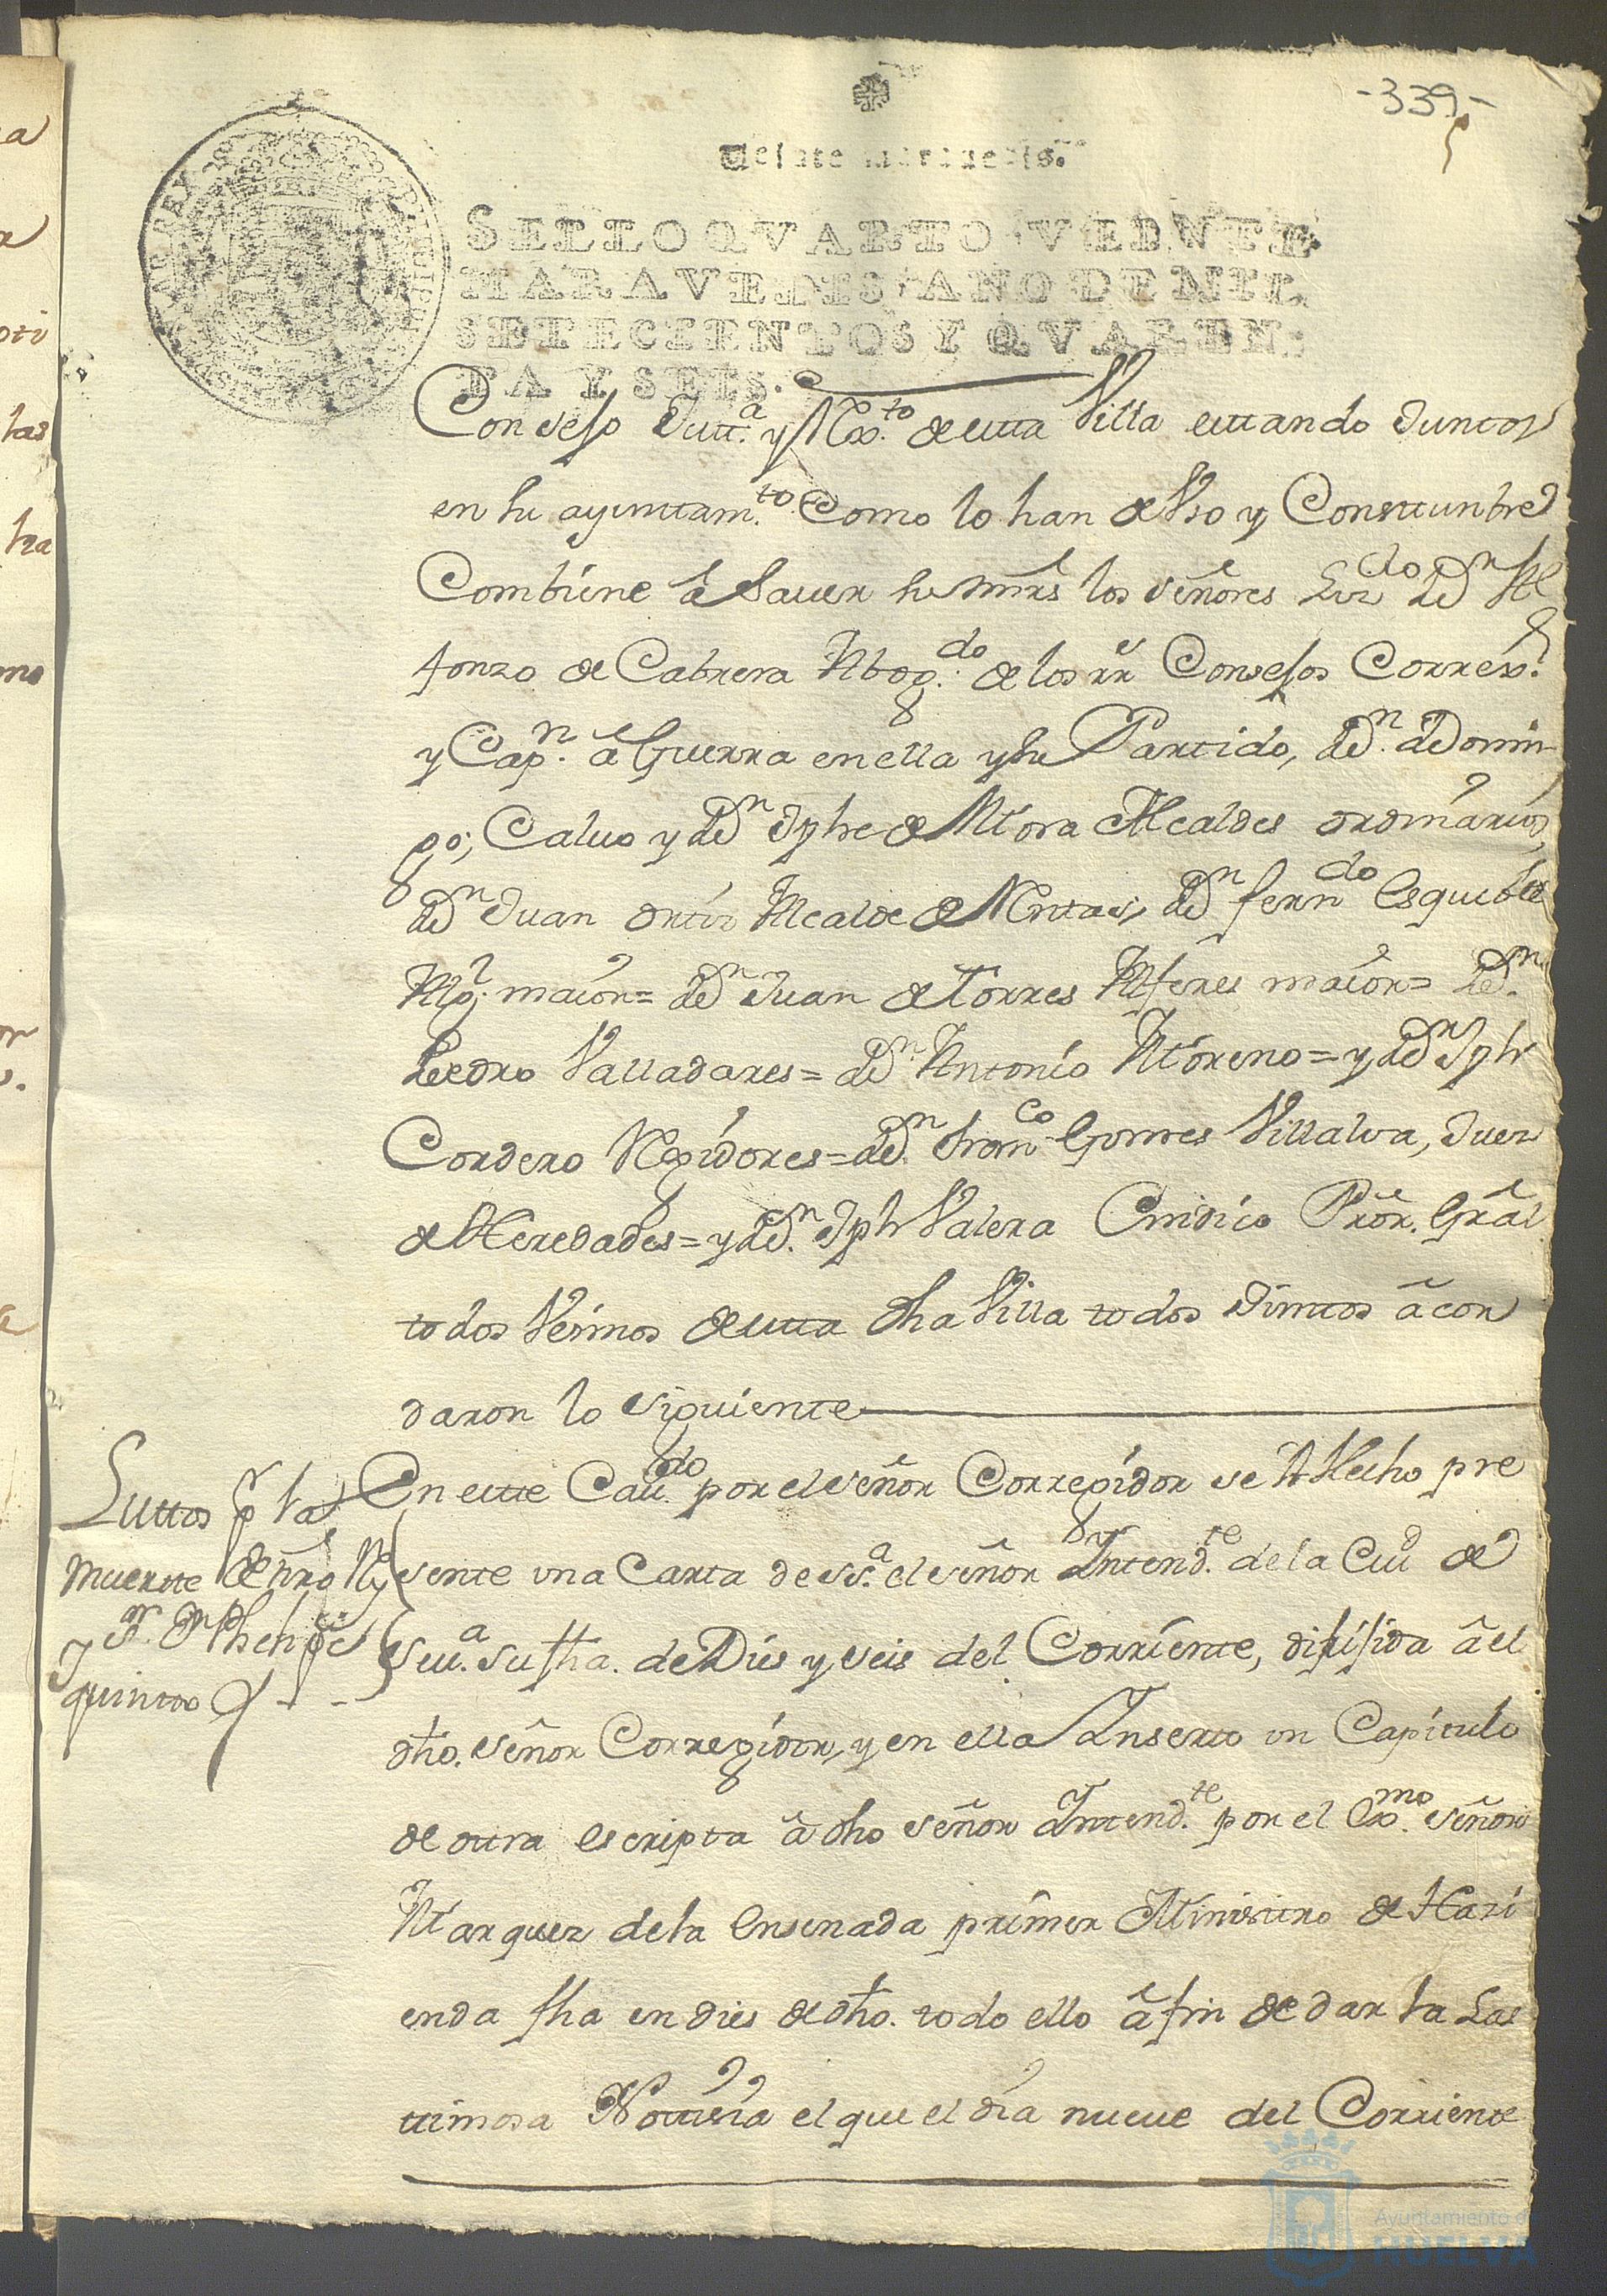 -339-
Veinte maravedis.
SELLO QVARTO, VEINTE
MARAVEDIS, AÑO DE MIL
SETECIENTOS Y QVAREN-
TA Y SEIS.
Consejo Justt.ª y Rex.to de esta Villa estando Juntos
en su ayuntam.to Como lo han de Vso y Constumbre
Combiene â Sauer sus mrs los señores Liz.do Dn Al
fonzo de Cabrera Abog.do de los RR Consejos Correx.r
y Cap.n â Guerra en ella y su Partido, Dn. Domin
go; Caluo y Dn Jphe de Mora Alcaldes ordinarios,
Dn Juan ortiz Alcalde de Rentas, Dn fern.do Esquibel
Alg.l maior= Dn Juan de Torres Alferes maior= Dn.
Pedro Valladares= Dn. Antonio Moreno= y Dn Jph
Cordero Regidores= Dn. Fran.co Gomes Villalva, Juez
de Heredades= y Dn. Jph Valera Cindico Prõr. Grãl
todos Vesinos de esta dha Villa todos Juntos âcor
daron lo siguiente
Luttos p.r la
muerte de nrõ Rey
y Sr. Dn Phelipe
quinto
En este Cau.do por el señor Corregidor se â Hecho pre
sente vna Carta de ss.ª el señor Intend.te de la Ciud de
Seu.ª su fha. de Dies y seis del Corriente, dirijida â el
dho. señor Corregidor, y en ella Inserto vn Capitulo
de otra escripta â dho señor Intend.te por el Ex.mo señor
Marquez de la Ensenada primer Ministro de Hazi
enda fha en dies de dho. todo ello â fin de dar la Las
timosa Notisia el que el dia nueue del Corriente
Ayuntamiento de
HUELVA